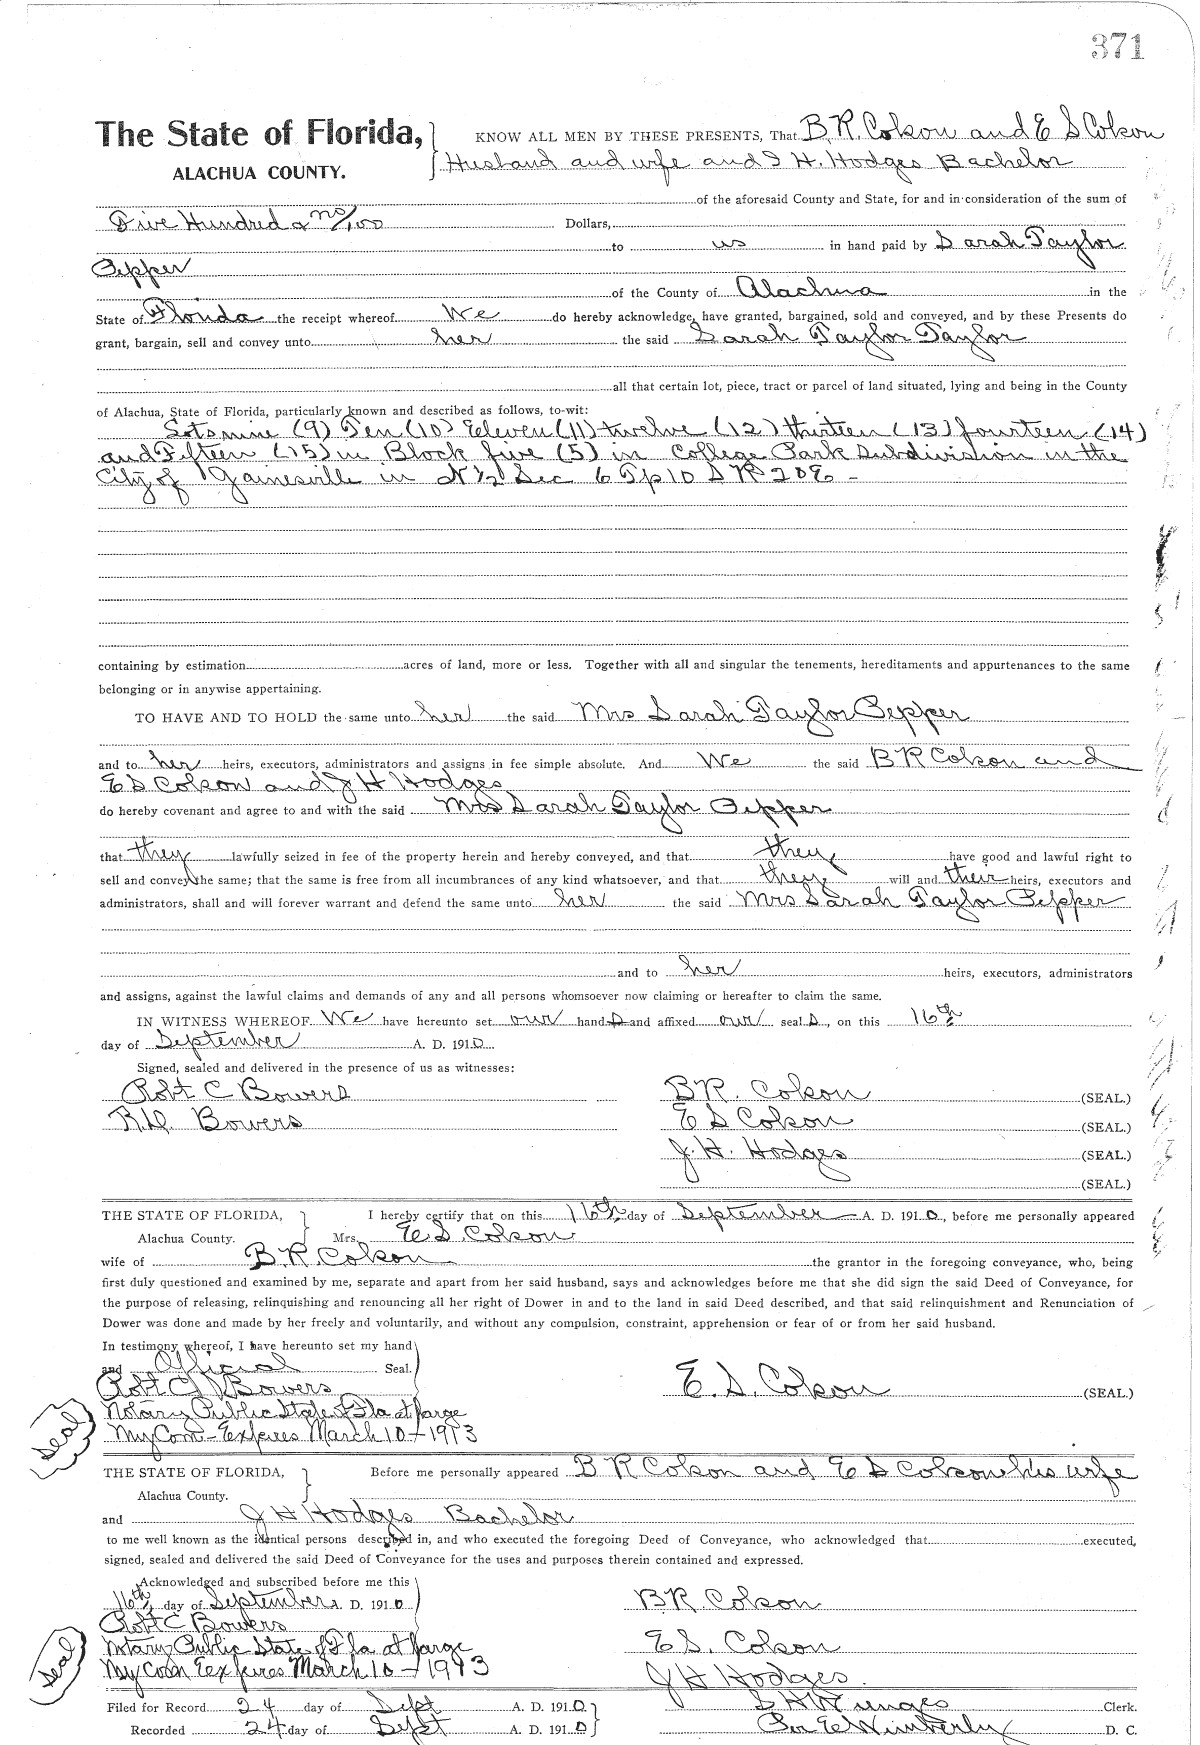 371
The State of Florida, KNOW ALL MEN BY THESE PRESENTS, That B. R. Colson and E S Colson
ALACHUA COUNTY. Husband and wife and J H. Hodges Bachelor
of the aforesaid County and State, for and in consideration of the sum of
Five Hundred & no/100 Dollars,
to us in hand paid by Sarah Taylor
Pepper
of the County of Alachua in the
State of Florida the receipt whereof We do hereby acknowledge, have granted, bargained, sold and conveyed, and by these Presents do
grant, bargain, sell and convey unto her the said Sarah Taylor Taylor
all that certain lot, piece, tract or parcel of land situated, lying and being in the County
of Alachua, State of Florida, particularly known and described as follows, to-wit:
Lots nine (9) Ten (10) Eleven (11) twelve (12) thirteen (13) fourteen (14)
and Fifteen (15) in Block five (5) in College Park Subdivision in the
City of Gainesville in N½ Sec 6 Tp 10 S R 20 E -
containing by estimation acres of land, more or less. Together with all and singular the tenements, hereditaments and appurtenances to the same
belonging or in anywise appertaining.
TO HAVE AND TO HOLD the same unto her the said Mrs Sarah Taylor Pepper
and to her heirs, executors, administrators and assigns in fee simple absolute. And We the said B R Colson and
E S Colson and J H Hodges
do hereby covenant and agree to and with the said Mrs Sarah Taylor Pepper
that they lawfully seized in fee of the property herein and hereby conveyed, and that they have good and lawful right to
sell and convey the same; that the same is free from all incumbrances of any kind whatsoever, and that they will and their heirs, executors and
administrators, shall and will forever warrant and defend the same unto her the said Mrs Sarah Taylor Pepper
and to her heirs, executors, administrators
and assigns, against the lawful claims and demands of any and all persons whomsoever now claiming or hereafter to claim the same.
IN WITNESS WHEREOF We have hereunto set our hand s and affixed our seal s, on this 16th
day of September A. D. 1910
Signed, sealed and delivered in the presence of us as witnesses:
Robt C Bowers B R. Colson (SEAL.)
R.D. Bowers E S Colson (SEAL.)
J. H. Hodges (SEAL.)
(SEAL.)
THE STATE OF FLORIDA, I hereby certify that on this 16th day of September A. D. 1910, before me personally appeared
Alachua County. Mrs. E S. Colson
wife of B. R. Colson the grantor in the foregoing conveyance, who, being
first duly questioned and examined by me, separate and apart from her said husband, says and acknowledges before me that she did sign the said Deed of Conveyance, for
the purpose of releasing, relinquishing and renouncing all her right of Dower in and to the land in said Deed described, and that said relinquishment and Renunciation of
Dower was done and made by her freely and voluntarily, and without any compulsion, constraint, apprehension or fear of or from her said husband.
In testimony whereof, I have hereunto set my hand
and Official Seal.
Robt C Bowers E. S. Colson (SEAL.)
Notary Public State of Fla at large
Seal My Com- Expires March 10-1913
THE STATE OF FLORIDA, Before me personally appeared B R Colson and E S Colson his wife
Alachua County.
and J H Hodges Bachelor
to me well known as the identical persons described in, and who executed the foregoing Deed of Conveyance, who acknowledged that executed,
signed, sealed and delivered the said Deed of Conveyance for the uses and purposes therein contained and expressed.
Acknowledged and subscribed before me this
16th day of September A. D. 1910 B R. Colson
Robt C Bowers
Notary Public State of Fla at large E S. Colson
Seal My Com Expires March 10-1913 J H Hodges.
Filed for Record 24 day of Sept A. D. 1910 Clerk.
Recorded 24 day of Sept A. D. 1910 Per E Wimberly D. C.